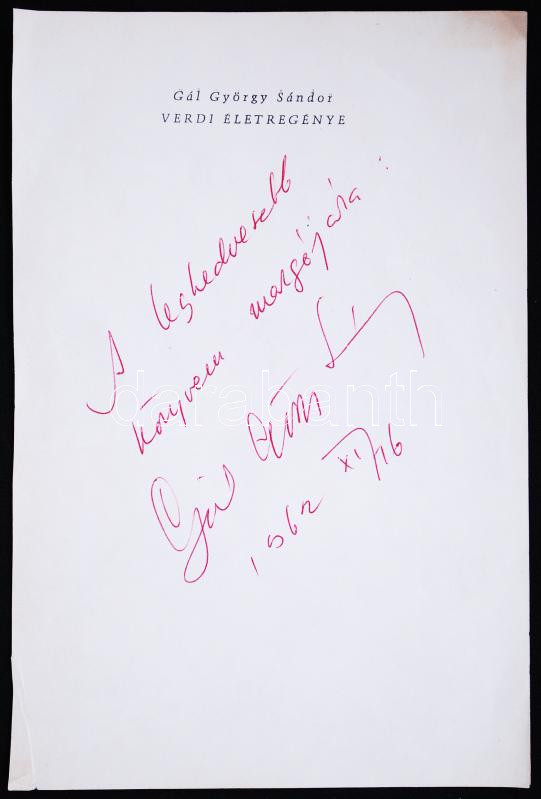 Gál György Sándor
VERDI ÉLETREGÉNYE
A legkedvesebb
könyvem margójára:
Gál György Sándor
1962 XI/16
darabanth